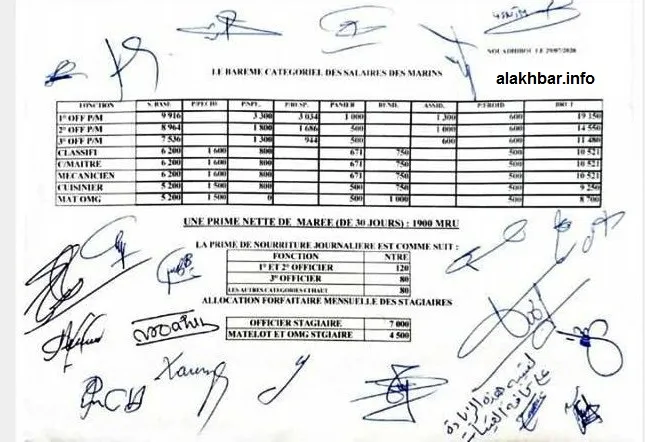 NOUADHIBOU LE 29/07/2020
LE BAREME CATEGORIEL DES SALAIRES DES MARINS
alakhbar.info
FONCTION S. BASE P/PECHE P/SPE. P/RESP. PANIER REND. ASSID. P/FROID BRUT
1° OFF P/M 9 916 3 300 3 034 1 000 1 300 600 19 150
2° OFF P/M 8 964 1 800 1 686 500 1 000 600 14 550
3° OFF P/M 7 536 1 300 944 500 600 600 11 480
CLASSIFI 6 200 1 600 800 671 750 500 10 521
C/MAITRE 6 200 1 600 800 671 750 500 10 521
MECANICIEN 6 200 1 600 800 671 750 500 10 521
CUISINIER 5 200 1 500 800 500 750 500 9 250
MAT OMG 5 200 1 500 0 500 1 000 500 8 700
UNE PRIME NETTE DE MAREE (DE 30 JOURS) : 1900 MRU
LA PRIME DE NOURRITURE JOURNALIERE EST COMME SUIT :
FONCTION NTRE
1° ET 2° OFFICIER 120
3° OFFICIER 80
LES AUTRES CATEGORIES 80
ALLOCATION FORFAITAIRE MENSUELLE DES STAGIAIRES
OFFICIER STAGIAIRE 7 000
MATELOT ET OMG STGIAIRE 4 500
هذه الزيادة